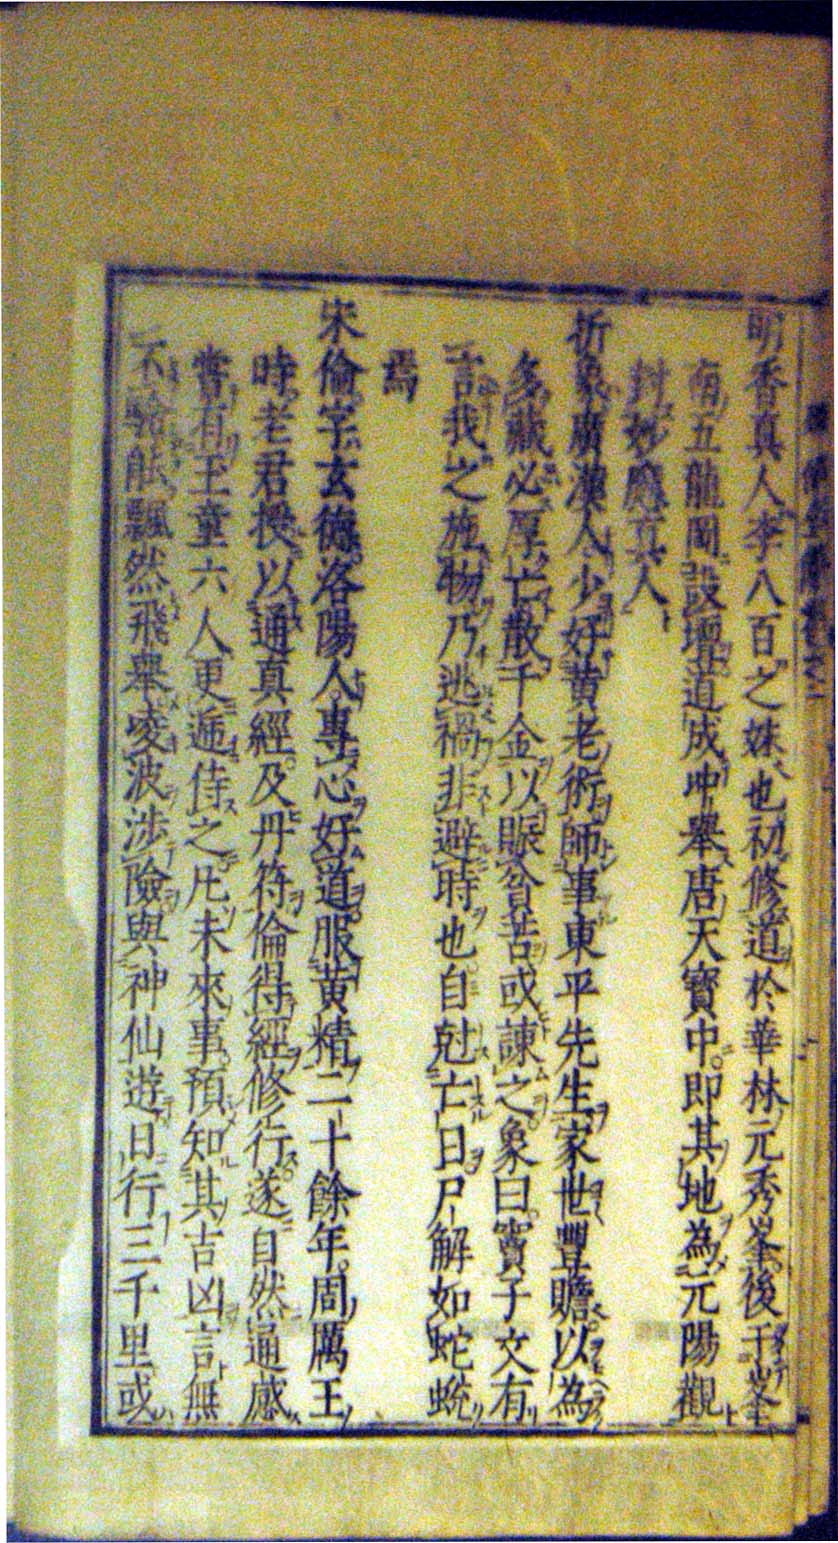 明香真人李八百之妹也初修道於華林元秀峯後于峯
南五龍岡設壇道成冲舉唐天寶中即其地為元陽觀
封妙應真人
折象廣漢人少好黃老術師事東平先生家世豐贍以為
多藏必厚亡散千金以賑貧苦或諫之象曰竇子文有
言我之施物乃逃禍非避時也自尅亡日尸解如蛇蛻
焉
宋倫字玄德洛陽人專心好道服黃精二十餘年周厲王
時老君授以通真經及丹符倫得經修行遂自然通感
嘗有玉童六人更遞侍之凡未來事預知其吉凶言無
不驗能飄然飛舉凌波涉險與神仙遊日行三千里或